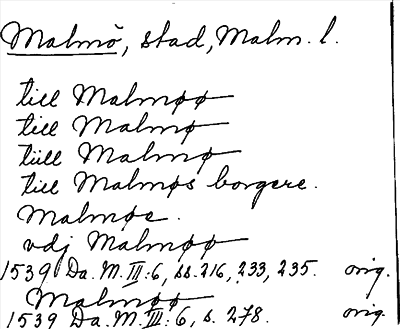 Malmö, stad, Malm. l.
till Malmøø
till Malmø
tiill Malmø
till Malmøs borgere.
Malmøe.
vdj Malmøø
1539 Da. M. III:6, ss. 216, 233, 235. orig.
Malmøø
1539 Da. M. III:6, s. 278. orig.